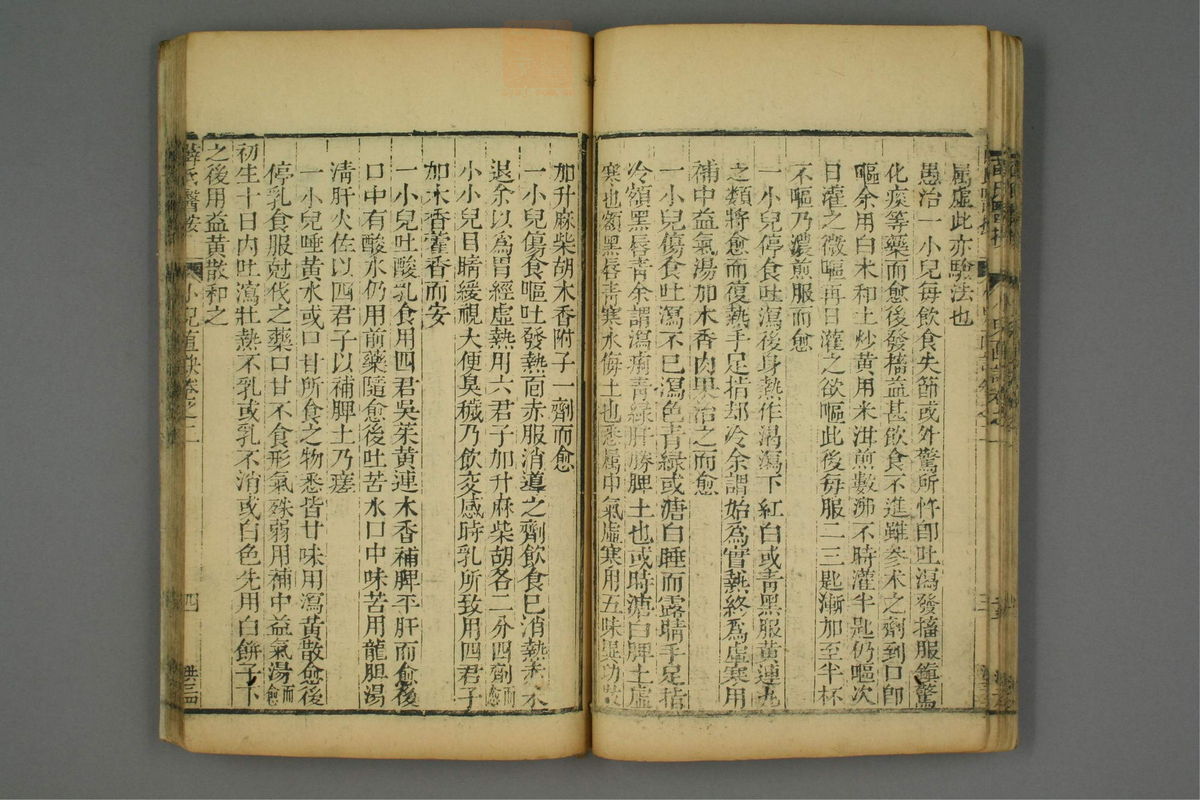 屬虛此亦驗法也
愚治一小兒每飲食失節或外驚所忤卽吐瀉發搐服鎮驚
化痰等藥而愈後發搐益甚飲食不進雖參朮之劑到口卽
嘔余用白朮和土炒黃用米泔煎數沸不時灌半匙仍嘔次
日灌之微嘔再日灌之欲嘔此後每服二三匙漸加至半杯
不嘔乃濃煎服而愈
一小兒停食吐瀉後身熱作渴瀉下紅白或靑黑服黃連丸
之類將愈而復熱手足指却冷余謂始爲實熱終爲虛寒用
補中益氣湯加木香肉果治之而愈
一小兒傷食吐瀉不已瀉色靑綠或溏白睡而露睛手足指
冷額黑唇靑余謂瀉痢靑綠肝勝脾土也或時溏白脾土虛
寒也額黑唇靑寒水侮土也悉屬中氣虛寒用五味異功散
加升麻柴胡木香附子一劑而愈
一小兒傷食嘔吐發熱面赤服消導之劑飲食已消熱赤不
退余以爲胃經虛熱用六君子加升麻柴胡各二分四劑而愈
小小兒目睛緩視大便臭穢乃飲交感時乳所致用四君子
加木香藿香而安
一小兒吐酸乳食用四君吳茱黃連木香補脾平肝而愈後
口中有酸水仍用前藥隨愈後吐苦水口中味苦用龍胆湯
淸肝火佐以四君子以補脾土乃瘥
一小兒唾黃水或口甘所食之物悉皆甘味用瀉黃散愈後
停乳食服尅伐之藥口甘不食形氣殊弱用補中益氣湯而愈
初生十日內吐瀉壯熱不乳或乳不消或白色先用白餅子下
之後用益黃散和之
薛氏醫按
小兒直訣卷之二
四